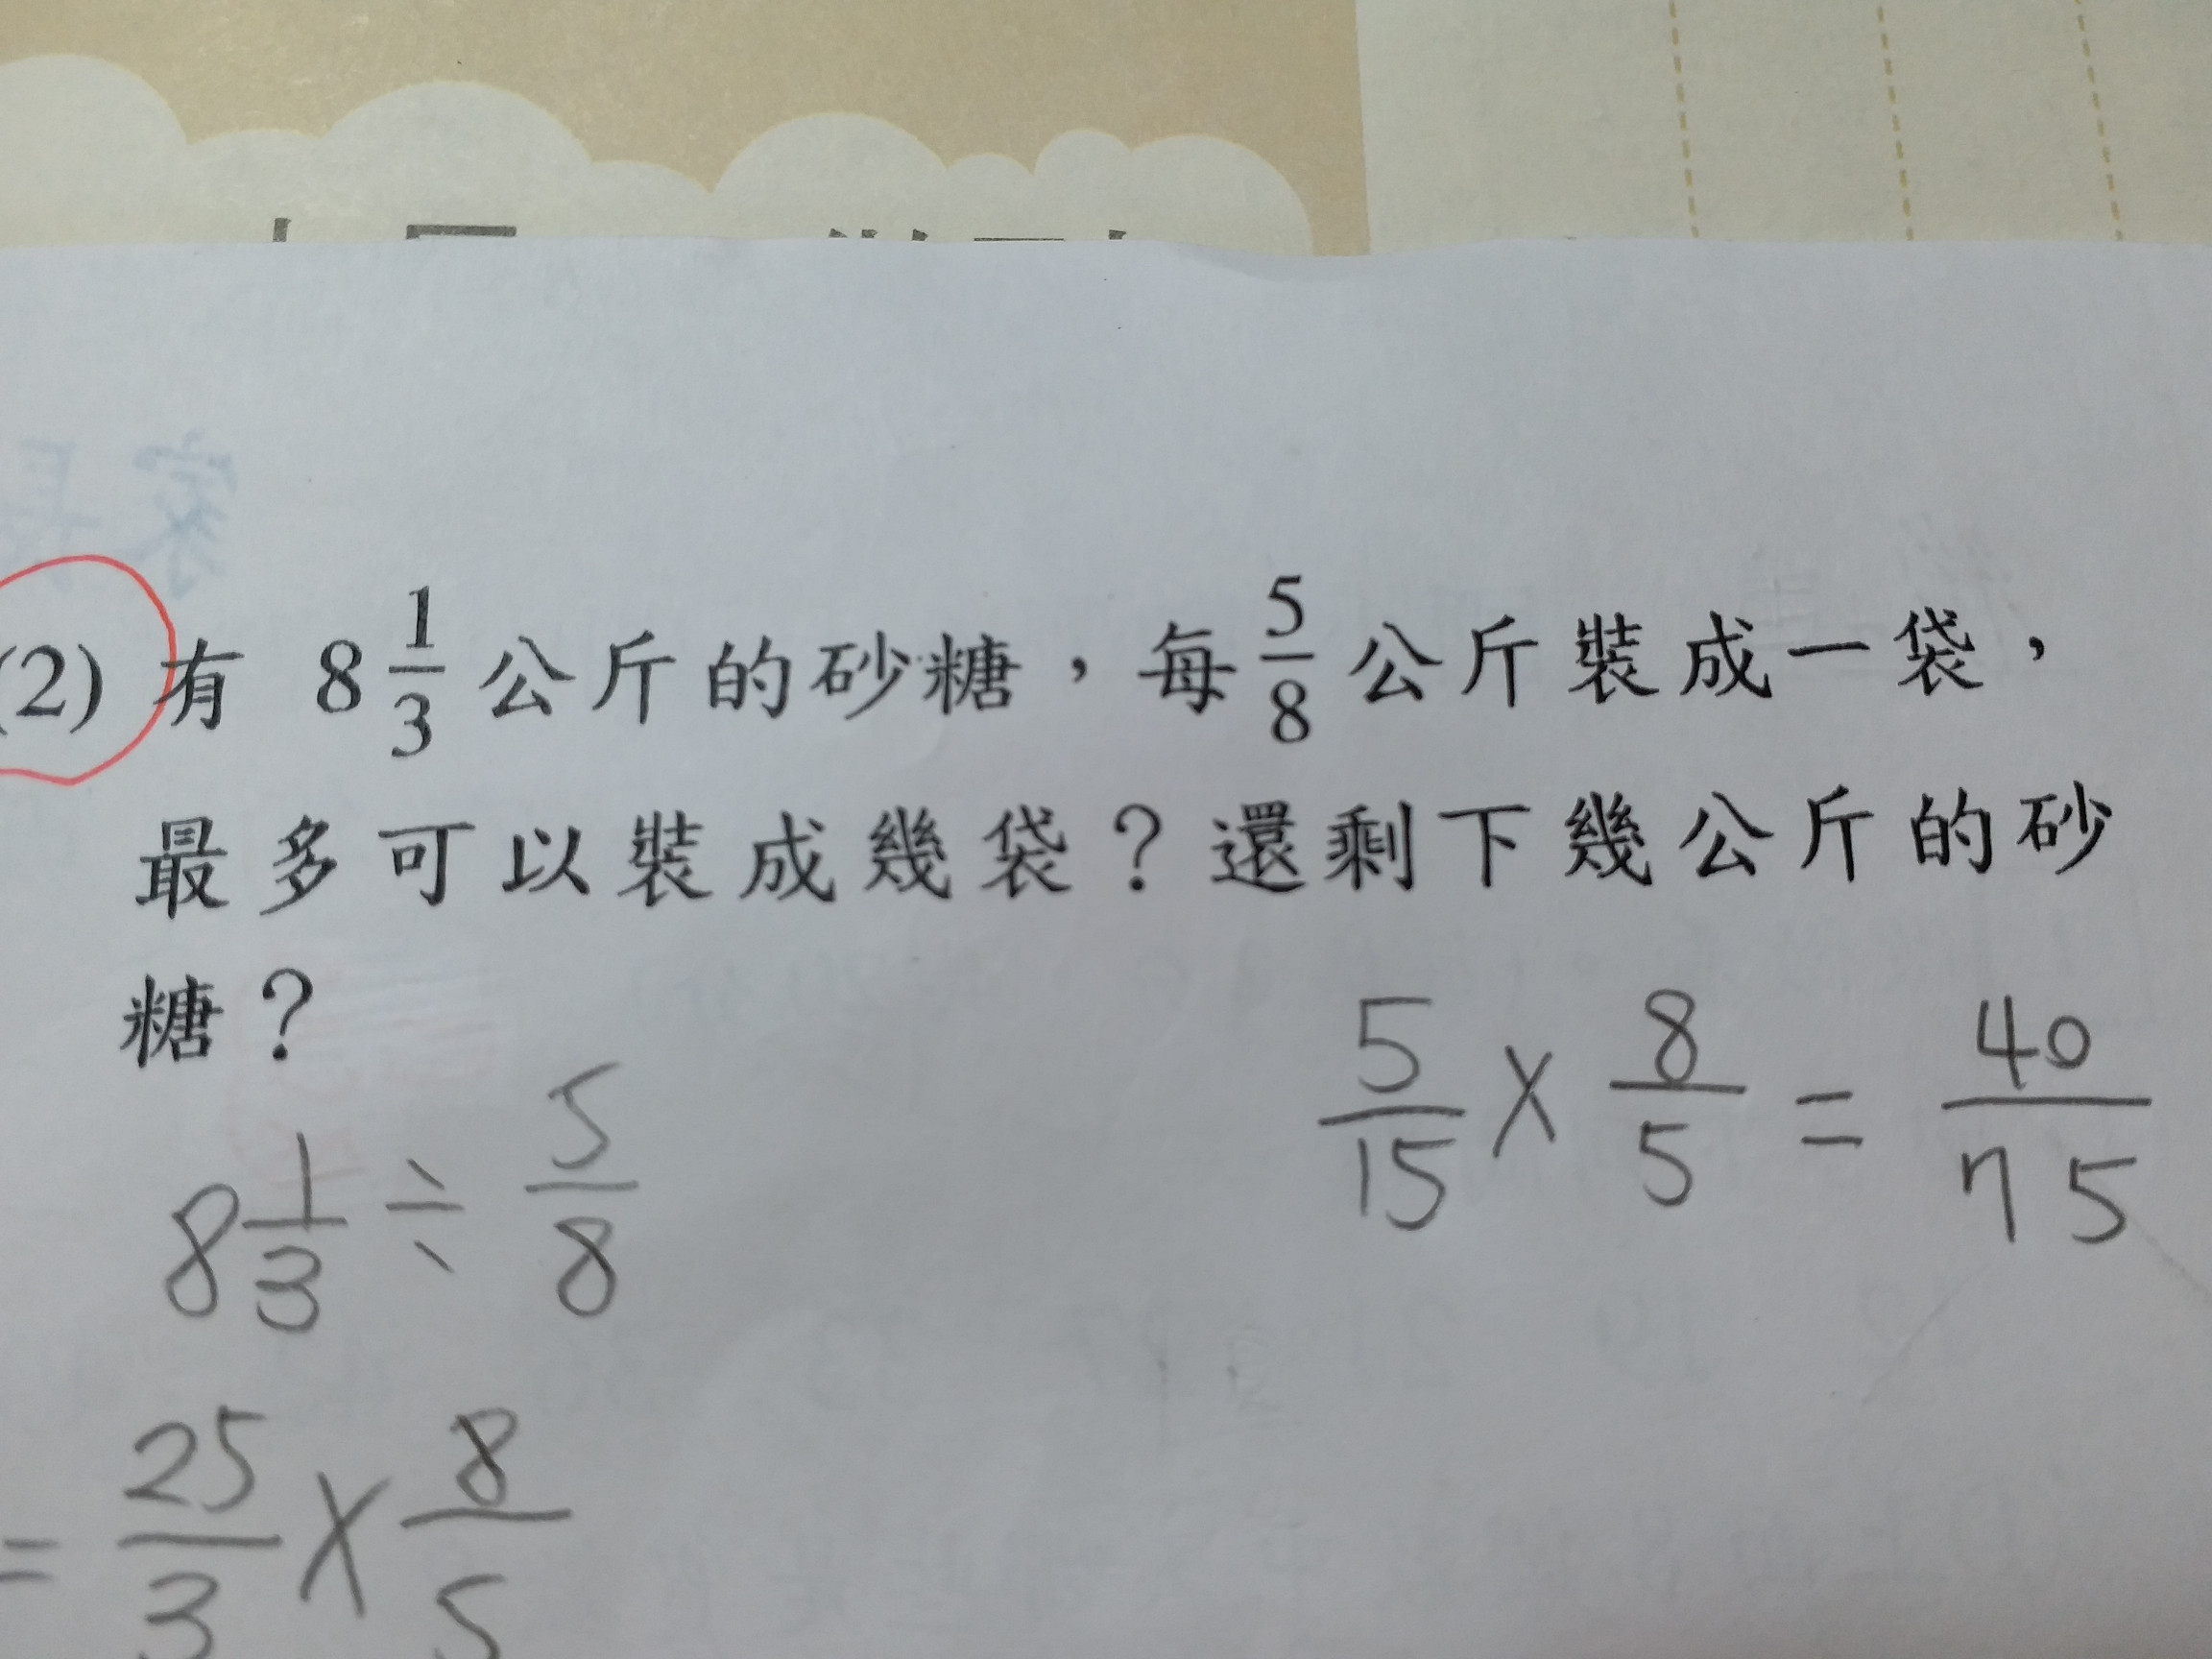 (2) 有 8 1/3 公斤的砂糖，每 5/8 公斤裝成一袋，
最多可以裝成幾袋？還剩下幾公斤的砂
糖？
5/15 × 8/5 = 40/75
8 1/3 ÷ 5/8
= 25/3 × 8/5